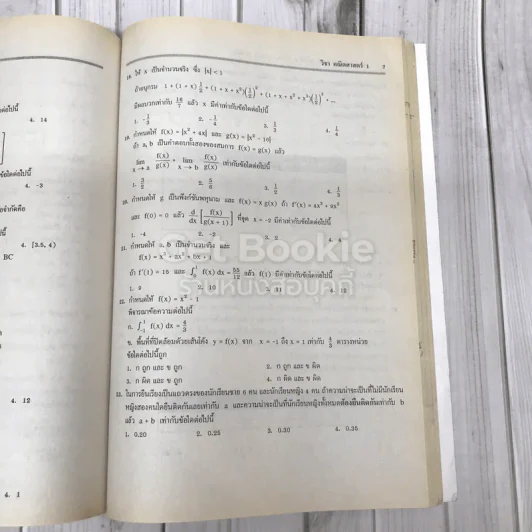 วิชา คณิตศาสตร์ 1 7
18. ให้ x เป็นจำนวนจริง ซึ่ง |x| < 1
ถ้าอนุกรม 1 + (1 + x) 1/2 + (1 + x + x²)(1/2)² + (1 + x + x² + x³)(1/2)³ + ...
มีผลบวกเท่ากับ 16/7 แล้ว x มีค่าเท่ากับข้อใดต่อไปนี้
1. -1/3 2. -1/4 3. 1/3 4. 1/4
19. กำหนดให้ f(x) = |x² + 4x| และ g(x) = |x² - 16|
ถ้า a, b เป็นคำตอบทั้งสองของสมการ f(x) = g(x) แล้ว
lim x → a f(x)/g(x) + lim x → b f(x)/g(x) เท่ากับข้อใดต่อไปนี้
1. 3/2 2. 3. 1/2 4. 1/3
กำหนดให้ g เป็นฟังก์ชันพหุนาม และ f(x) = x g(x) ถ้า f'(x) = 4x³ + 9x²
และ f(0) = 0 แล้ว d/dx [f(x)/g(x + 1)] ที่จุด x = -2 มีค่าเท่ากับข้อใดต่อไปนี้
1. -4 2. -2 3. 2 4. 4
กำหนดให้ a, b เป็นจำนวนจริง และ
f(x) = x³ + ax² + bx + 1
ถ้า f'(1) = 16 และ f(x) dx = 55/12 แล้ว f(1) มีค่าเท่ากับข้อใดต่อไปนี้
1. 9 2. 10 3. 11 4. 12
กำหนดให้ f(x) = x² - 1
พิจารณาข้อความต่อไปนี้
ก. ∫₋₁¹ f(x) dx = 4/3
ข. พื้นที่ที่ปิดล้อมด้วยเส้นโค้ง y = f(x) จาก x = -1 ถึง x = 1 เท่ากับ 4/3 ตารางหน่วย
ข้อใดต่อไปนี้ถูก
1. ก ถูก และ ข ถูก 2. ก ถูก และ ข ผิด
3. ก ผิด และ ข ถูก 4. ก ผิด และ ข ผิด
ในการยืนเรียงเป็นแถวตรงของนักเรียนชาย 6 คน และนักเรียนหญิง 4 คน ถ้าความน่าจะเป็นที่ไม่มีนักเรียน
หญิงสองคนใดยืนติดกันเลยเท่ากับ a และความน่าจะเป็นที่นักเรียนหญิงทั้งหมดต้องยืนติดกันเท่ากับ b
แล้ว a + b เท่ากับข้อใดต่อไปนี้
1. 0.20 2. 0.25 3. 0.30 4. 0.35
4. 14
4. -3
4. [3.5, 4)
BC
4. 12
4. 1
Bookie
ร้านหนังสือบุคกี้